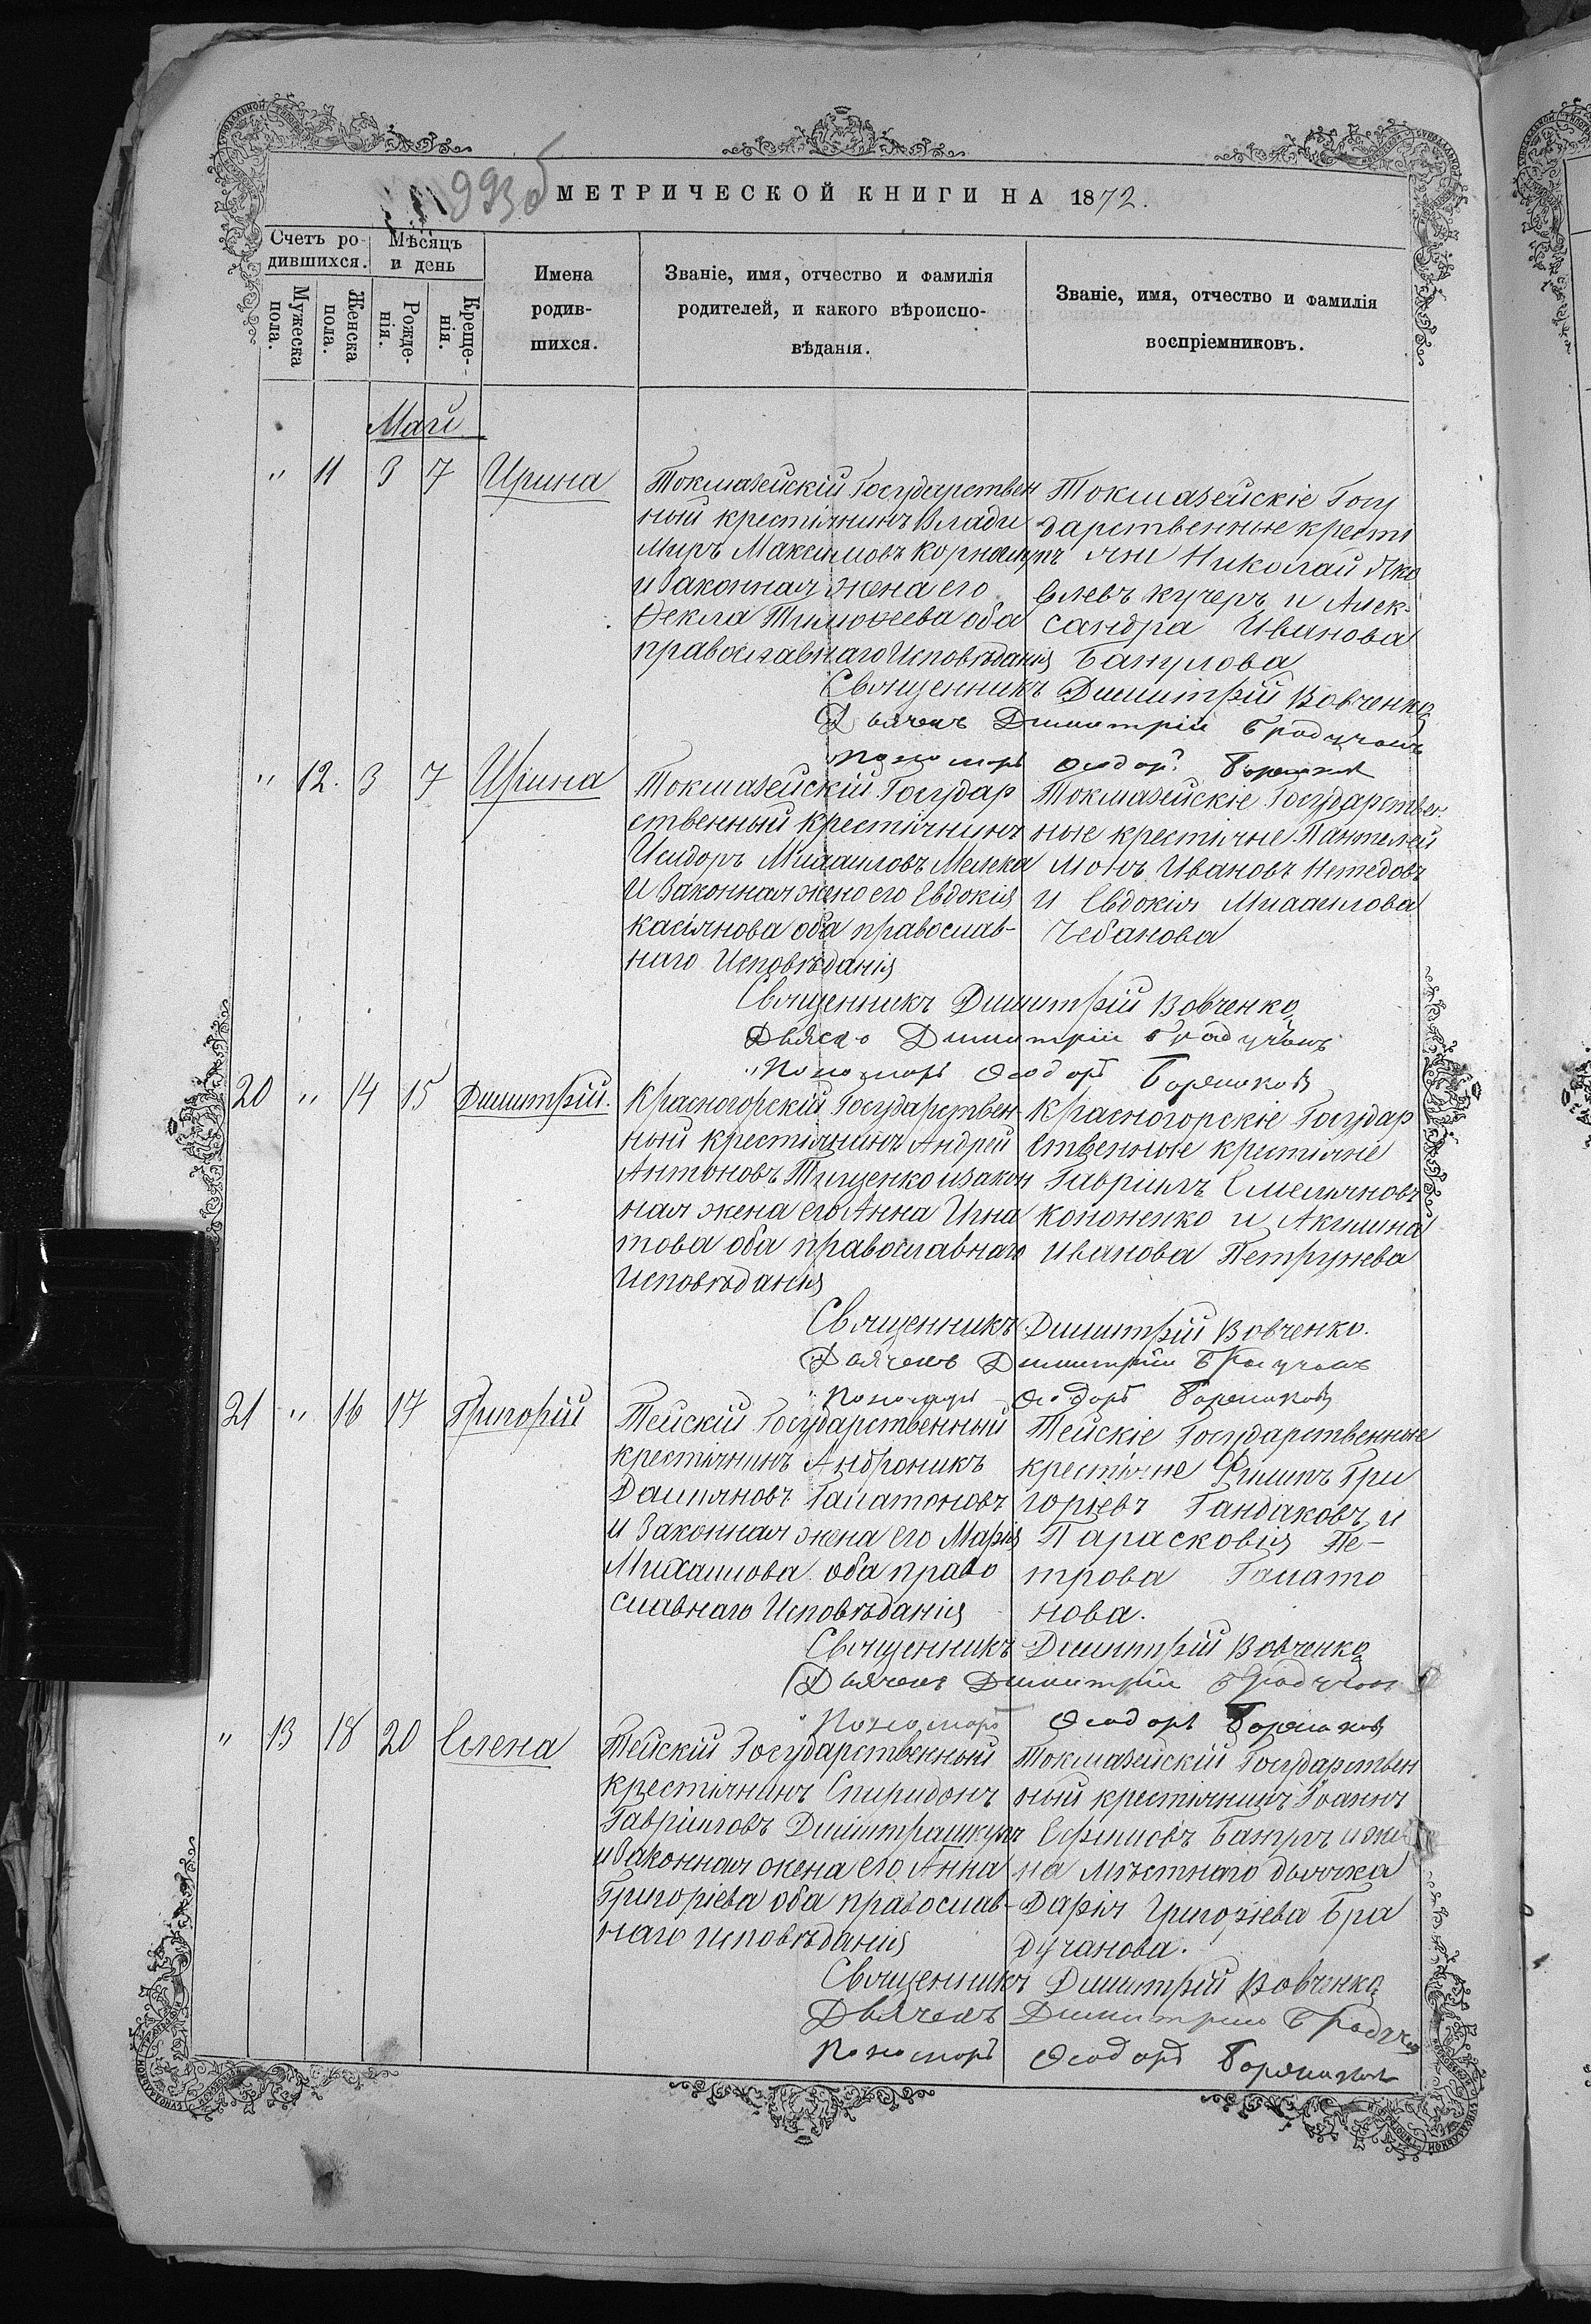 993об
МЕТРИЧЕСКОЙ КНИГИ НА 1872.
Счетъ ро-
дившихся.
Мѣсяцъ
и день
Мужеска
пола.
Женска
пола.
Рожде-
нія.
Креще-
нія.
Имена
родив-
шихся.
Званіе, имя, отчество и фамилія
родителей, и какого вѣроиспо-
вѣданія.
Званіе, имя, отчество и фамилія
воспріемниковъ.
Май
" 11 3 7 Ирина
Токмазейскій Государствен
ный крестіянинъ Влади
миръ Максимовъ
и Законная жена его
Ѳекла Тимоѳеева оба
православнаго Исповѣданія
Токмазейскіе Госу
дарственные крести
яни Николай Яко
влевъ Кучеръ и Алек-
сандра Иванова
Банулова
Священникъ Димитрій Вовченко
Дьячекъ Димитрій Брадучанъ
Пономарь Ѳеодоръ
" 12. 3 7 Ирина
Токмазейскій Государ
ственный Крестіянинъ
Исидоръ Михаиловъ Мелека
И Законная жено его Евдокія
Касіянова оба православ-
наго Исповѣданія
Токмазейскіе Государствен
ные крестіяне Пантелей
монъ Ивановъ
И Евдокія Михаилова
Чебанова
Священникъ Димитрій Вовченко
Димитрій Брадучанъ
Пономарь Ѳеодоръ
20 " 14 15 Димитрій.
Красногорскій Государствен
ный крестіянинъ Андрей
Антоновъ Тищенко изакон
ная жена его Анна Игна
това оба православнаго
Исповѣданія
Красногорскіе Государ
ственные крестіяне
Гавріилъ Емельяновъ
Кононенко и Акилина
Иванова Петружева
Священникъ Димитрій Вовченко.
Дьячекъ Димитрій
Пономарь Ѳеодоръ
21 " 16 17 Григорій
Тейскій Государственный
крестіянинъ Андроникъ
Даміяновъ Галатоновъ
и Законная жена его Марія
Михаилова оба право
славнаго Исповѣданія
Тейскіе Государственные
крестіяне Филипъ Гри
горіевъ Гандаковъ и
Парасковія Пе-
трова Галато
нова.
Священникъ Димитрій Вовченко
Дьячекъ Димитрій
Пономарь Ѳеодоръ
" 13 18 20 Елена
Тейскій Государственный
крестіянинъ Спиридонъ
Гавріиловъ
и Законная жена его Анна
Григоріева оба православ-
наго исповѣданія
Токмазейскій Государствен
ный крестіянинъ Іоаннъ
Банулъ и же
на мѣстнаго дьячка
Дарія Григоріева Бра
дучанова.
Священникъ Димитрій Вовченко
Дьячекъ Димитрій
Пономарь Ѳеодоръ